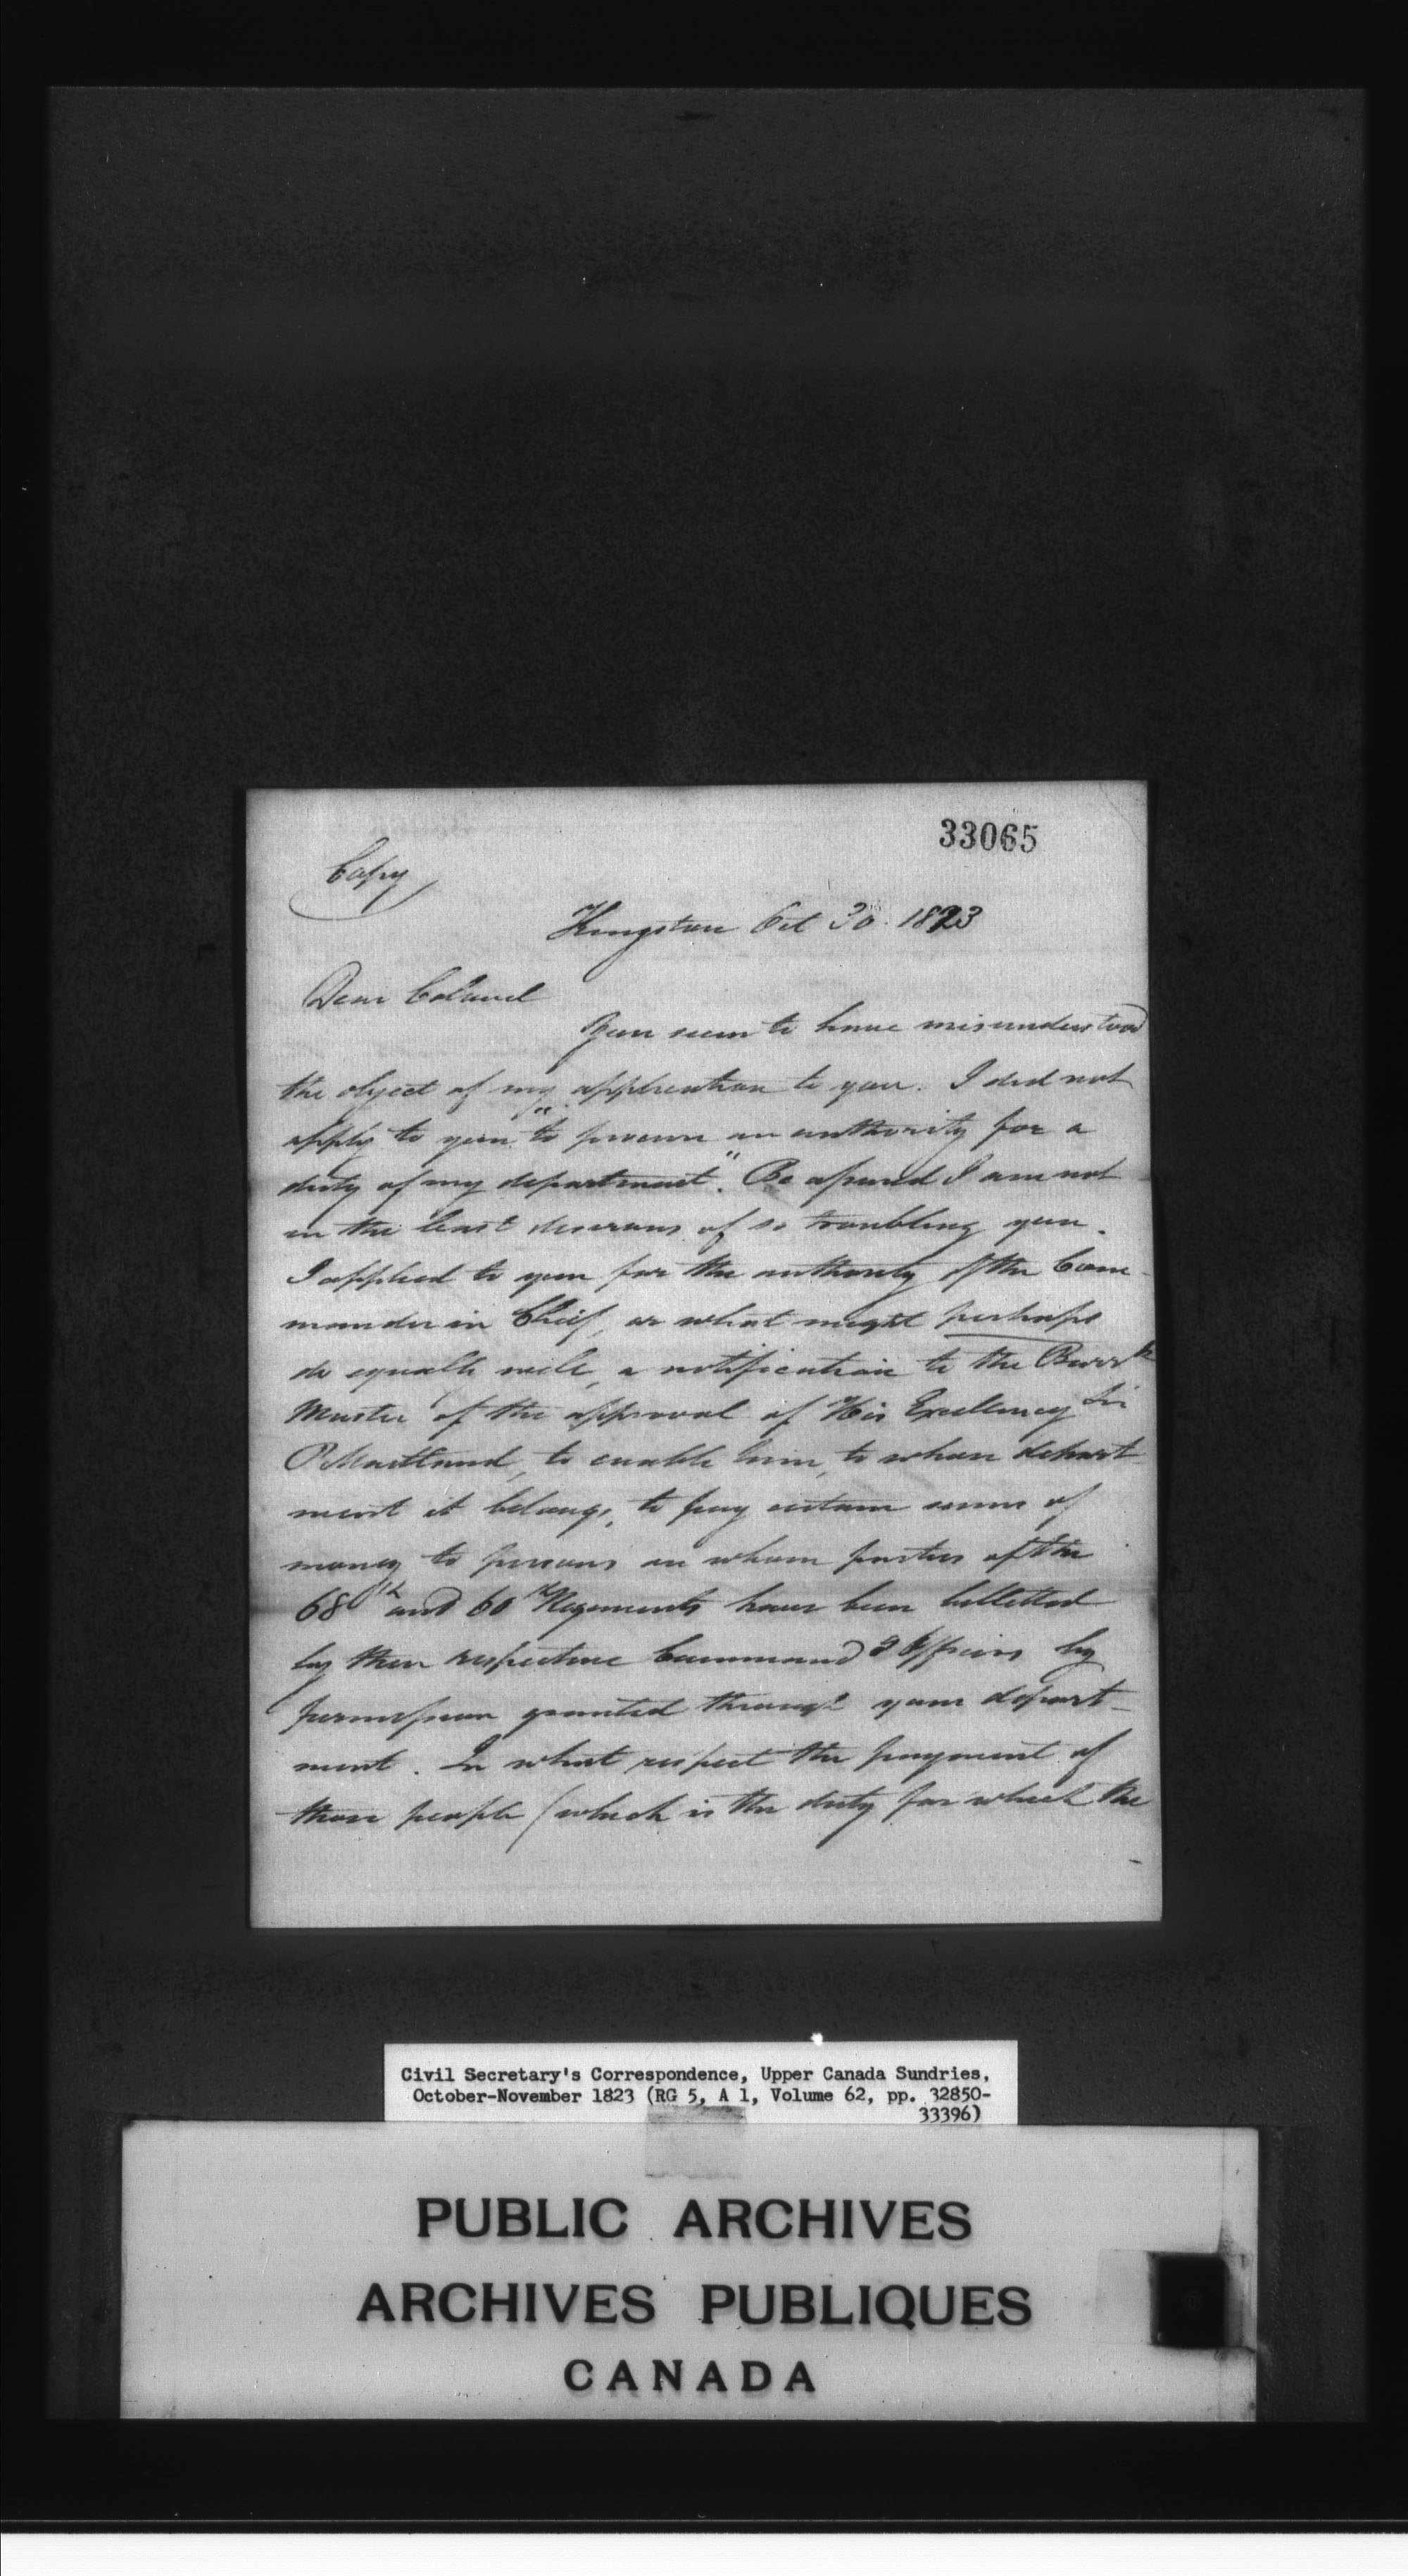 33065
Copy
Kingston Oct 30th 1823
Dear Colonel
You seem to have misunderstood
the object of my application to you. I did not
apply to you "to procure an authority for a
duty of my department". Be assured I am not
in the least desirous of so troubling you.
I applied to you for the authority of the Com-
mander in Chief, or what might perhaps
do equally well, a notification to the Barrk
Master of the approval of His Excellency Sir
P Maitland, to enable him, to whose depart
ment it belongs, to pay certain sums of
money to persons on whom parties of the
68th and 60th Regiments have been billetted
by their respective Command g Officers by
permission granted through your depart-
ment. In what respect the payment of
these people (which is the duty for which the
Civil Secretary's Correspondence, Upper Canada Sundries,
October-November 1823 (RG 5, A 1, Volume 62, pp. 32850-
33396)
PUBLIC ARCHIVES
ARCHIVES PUBLIQUES
CANADA